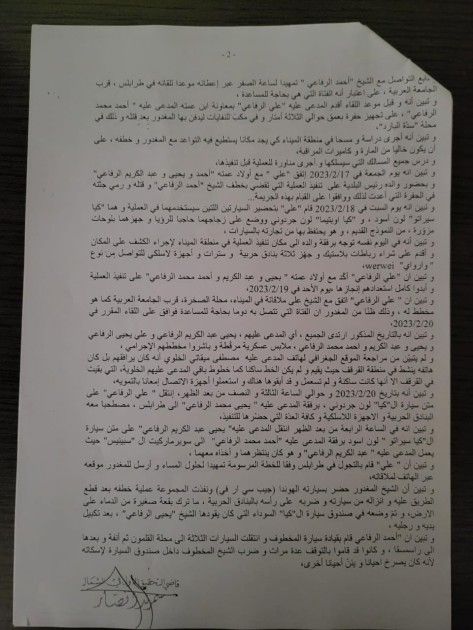 - 2 -
تابع التواصل مع الشيخ "أحمد الرفاعي " تمهيدا لساعة الصفر عبر إعطائه موعدا للقائه في طرابلس ، قرب
الجامعة العربية ، على إعتبار أنه الفتاة التي هي بحاجة للمساعدة ،
و تبين أنه و قبل موعد اللقاء أقدم المدعى عليه "علي الرفاعي" بمعاونة ابن عمته المدعى عليه " أحمد محمد
الرفاعي" ، على تجهيز حفرة بعمق حوالي الثلاثة أمتار و في مكب للنفايات ليدفن بها المغدور بعد قتله و ذلك في
محلة "سدّة البارد".
و تبين أنه أجرى دراسة و مسحا في منطقة الميناء كي يجد مكانا يستطيع فيه التواعد مع المغدور و خطفه ، على
أن يكون خاليا من المارة و كاميرات المراقبة،
و درس جميع المسالك التي سيسلكها و أجرى مناورة للعملية قبل تنفيذها،
و تبين أنه يوم الجمعة في 2023/2/17 إتفق "علي " مع أولاد عمته "أحمد و يحيى و عبد الكريم الرفاعي"
و بحضور والده رئيس البلدية على تنفيذ العملية التي تقضي بخطف الشيخ "أحمد الرفاعي" و قتله و رمي جثته
في الحفرة التي أعدت لذلك ووافقوا على القيام بهذه الجريمة.
و تبين أنه يوم السبت في 2023/2/18 قام "علي" بتحضير السيارتين اللتين سيستخدمهما في العملية و هما "كيا
سيراتو " لون أسود ، و "كيا اوبتيما" لون جردوني ووضع على زجاجهما حاجبا للرؤيا و جهزهما بلوحات
مزورة ، من النموذج القديم ، و هو يحتفظ بها من تجارته بالسيارات ،
و تبين أنه في اليوم نفسه توجه برفقة والده الى مكان تنفيذ العملية في منطقة الميناء لإجراء الكشف على المكان
و أقدم على شراء رباطات بلاستيك و جهز ثلاثة بنادق حربية و سترات و أجهزة لاسلكي للتواصل من نوع
" وارواي" werwei،
و تبين ان "علي الرفاعي" أكد مع أولاد عمته " يحيى و عبد الكريم و أحمد محمد الرفاعي" على تنفيذ العملية
و أبدوا كامل استعدادهم إنجازها يوم الأحد في 2023/2/19،
و تبين ان "علي الرفاعي" اتفق مع الشيخ على ملاقاته في الميناء، محلة الصخرة، قرب الجامعة العربية كما هو
مخطط له ، وذلك ظنا من المغدور ان الفتاة التي تتصل به دوما بحاجة للمساعدة فوافق على اللقاء المقرر في
2023/2/20
و تبين أنه بالتاريخ المذكور ارتدى الجميع ، أي المدعى عليهم ، يحيى عبد الكريم الرفاعي و علي يحيى الرفاعي
و يحيى و عبد الكريم و احمد محمد الرفاعي ، ملابس عسكرية مرقطة و باشروا مخططهم الإجرامي ،
و لم يتبين من مراجعة الموقع الجغرافي لهاتف المدعى عليه مصطفى ميقاتي الخلوي أنه كان يرافقهم بل كان
هاتفه ينشط في منطقة القرقف حيث يقيم و لم يكن الخط ساكنا كما خطوط باقي المدعى عليهم الخلوية، التي بقيت
في القرقف الا أنها كانت ساكنة و لم تسعمل و قد أبقوها هناك و استعملوا أجهزة الاتصال إمعانا بالتمويه،
و تبين انه بتاريخ 2023/2/20 و حوالي الساعة الثالثة و النصف من بعد الظهر، انتقل " علي الرفاعي" على
متن سيارة ال"كيا" لون جردوني ، برفقة المدعى عليه " يحيى محمد الرفاعي" الى طرابلس ، مصطحبا معه
البنادق الحربية و الاجهزة اللاسلكية و كافة العدة التي حضرها للتنفيذ،
و تبين انه في الساعة الرابعة من بعد الظهر انتقل المدعى عليه" يحيى عبد الكريم الرفاعي" على متن سيارة
ال"كيا سيراتو " لون اسود برفقة المدعى عليه "أحمد محمد الرفاعي" الى سوبرماركيت ال "سبينيس" حيث
يعمل المدعى عليه " عبد الكريم الرفاعي" و هو كان ينتظرهما و أخذاه معهما ،
و تبين أن "علي" قام بالتجول في طرابلس وفقا للخطة المرسومة تمهيدا لحلول المساء و أرسل للمغدور موقعه
عبر الهاتف لملاقاته،
و تبين أن الشيخ المغدور حضر بسيارته الهوندا (جيب سي ار في) ونفذت المجموعة عملية خطفه بعد قطع
الطريق عليه و انزاله من سيارته و ضربه على رأسه بالبنادق الحربية ، ما ترك بقعة صغيرة من الدماء على
الارض، و تم وضعه في صندوق سيارة ال"كيا" السوداء التي كان يقودها الشيخ "يحيى الرفاعي" ، بعد تكبيل
يديه و رجليه ،
و تبين ان "أحمد الرفاعي" قام بقيادة سيارة المخطوف و انتقلت السيارات الثلاثة الى محلة القلمون ثم أنفة و بعدها
الى راسمسقا ، و كانوا قد قاموا بالتوقف عدة مرات و ضرب الشيخ المخطوف داخل صندوق السيارة لإسكاته
لأنه كان يصرخ احيانا و يئن أحيانا أخرى،